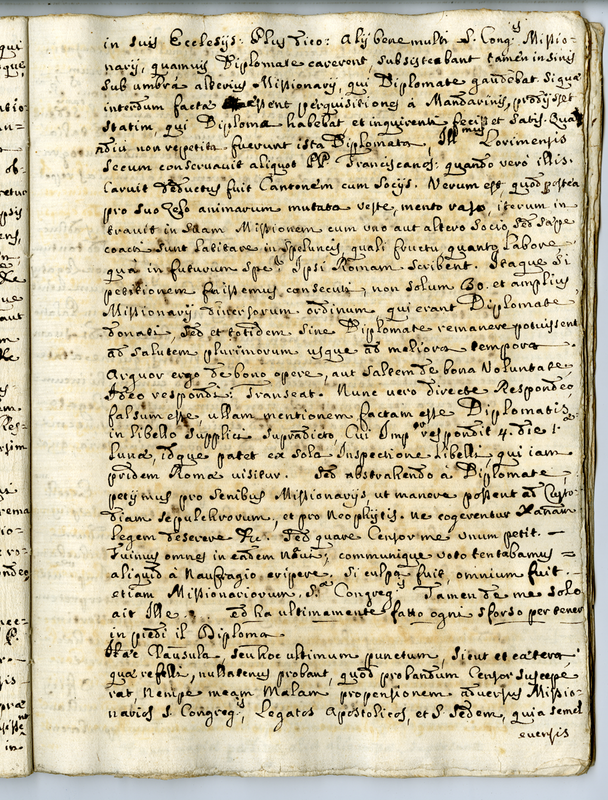 in suis Ecclesijs. Plus dico: Alij bene multi S. Congis Missio-
narij, quamvis Diplomate carerent subsistebant tamen in sinis
sub umbrâ alterius Missionarij, qui Diplomate gaudebat. Si quae
interdum facta essent perquisitiones à Mandarinis, prodijsset
statim, qui Diploma habebat et inquirenti fecisset satis. Quam
diu non repetita fuerunt ista Diplomata, Illmus Lorimensis
secum conservavit aliquot PP. Franciscanos: quando vero illis
caruit deductus fuit Cantonem cum socijs. Verum est quod postea
pro suo zelo animarum mutata veste, mento raso, iterum in
travit in Missionem cum uno aut altero socio sed saepe
coacti sunt latitare in speluncis, quali fructu quanto labore,
qua in futurum spe Ipsi Romam scribent. Itaque si
petitionem fuissemus consecuti, non solum 30. et amplius
Missionarij diversorum ordinum, qui erant Diplomate
donati, sed et totidem sine Diplomate remanere potuissent
ad salutem plurimorum usque ad meliora tempora.
Arguor ergo de bono opere, aut saltem de bona Voluntate.
Ideo respondi: Transeat. Nunc vero directe Respondeo
falsum esse ullam mentionem factam esse Diplomatis
in libello supplici supradicto, cui Impor respondit 4. die 1ae
Lunae, idque patet ex sola Inspectione libelli qui iam
pridem Romae visitur. Sed abstrahendo à Diplomate
petijmus pro senibus Missionarijs, ut manere possent ad Custo-
diam sepulchrorum, et pro Neophijtis. ne cogerentur Xanam
Legem deserere &c. Sed quare Censor me unum petit.
Fuimus omnes in eadem Navi, communique voto tentabamus
aliquid à Naufragio eripere. Si culpa fuit, omnium fuit
etiam Missionariorum S. Congregis Tamen de me solo
ait Ille. ed ha ultimamente fatto ogni sforso per tener
in piedi il Diploma
Haec Clausula seu hoc ultimum punctum, sicut et caetera
quae refelli, nullatenus probant, quod probandum Censor suscepe
rat, Nempe meam Malam propensionem adversus Missio-
narios S. Congregis, Legatos Apostolicos, et S. Sedem, quia semel
eversis